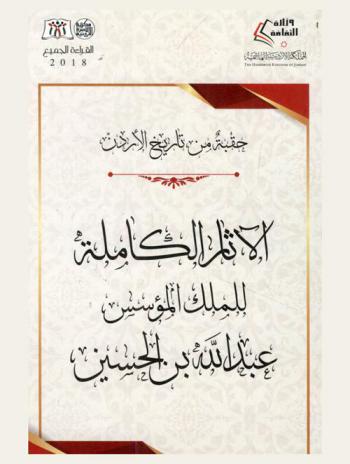 وزارة الثقافة
المملكة الأردنية الهاشمية
THE HASHEMITE KINGDOM OF JORDAN
القراءة للجميع
2018
حقبةٌ من تاريخ الأردن
الآثار الكاملة
للملك المؤسس
عبدالله بن الحسين